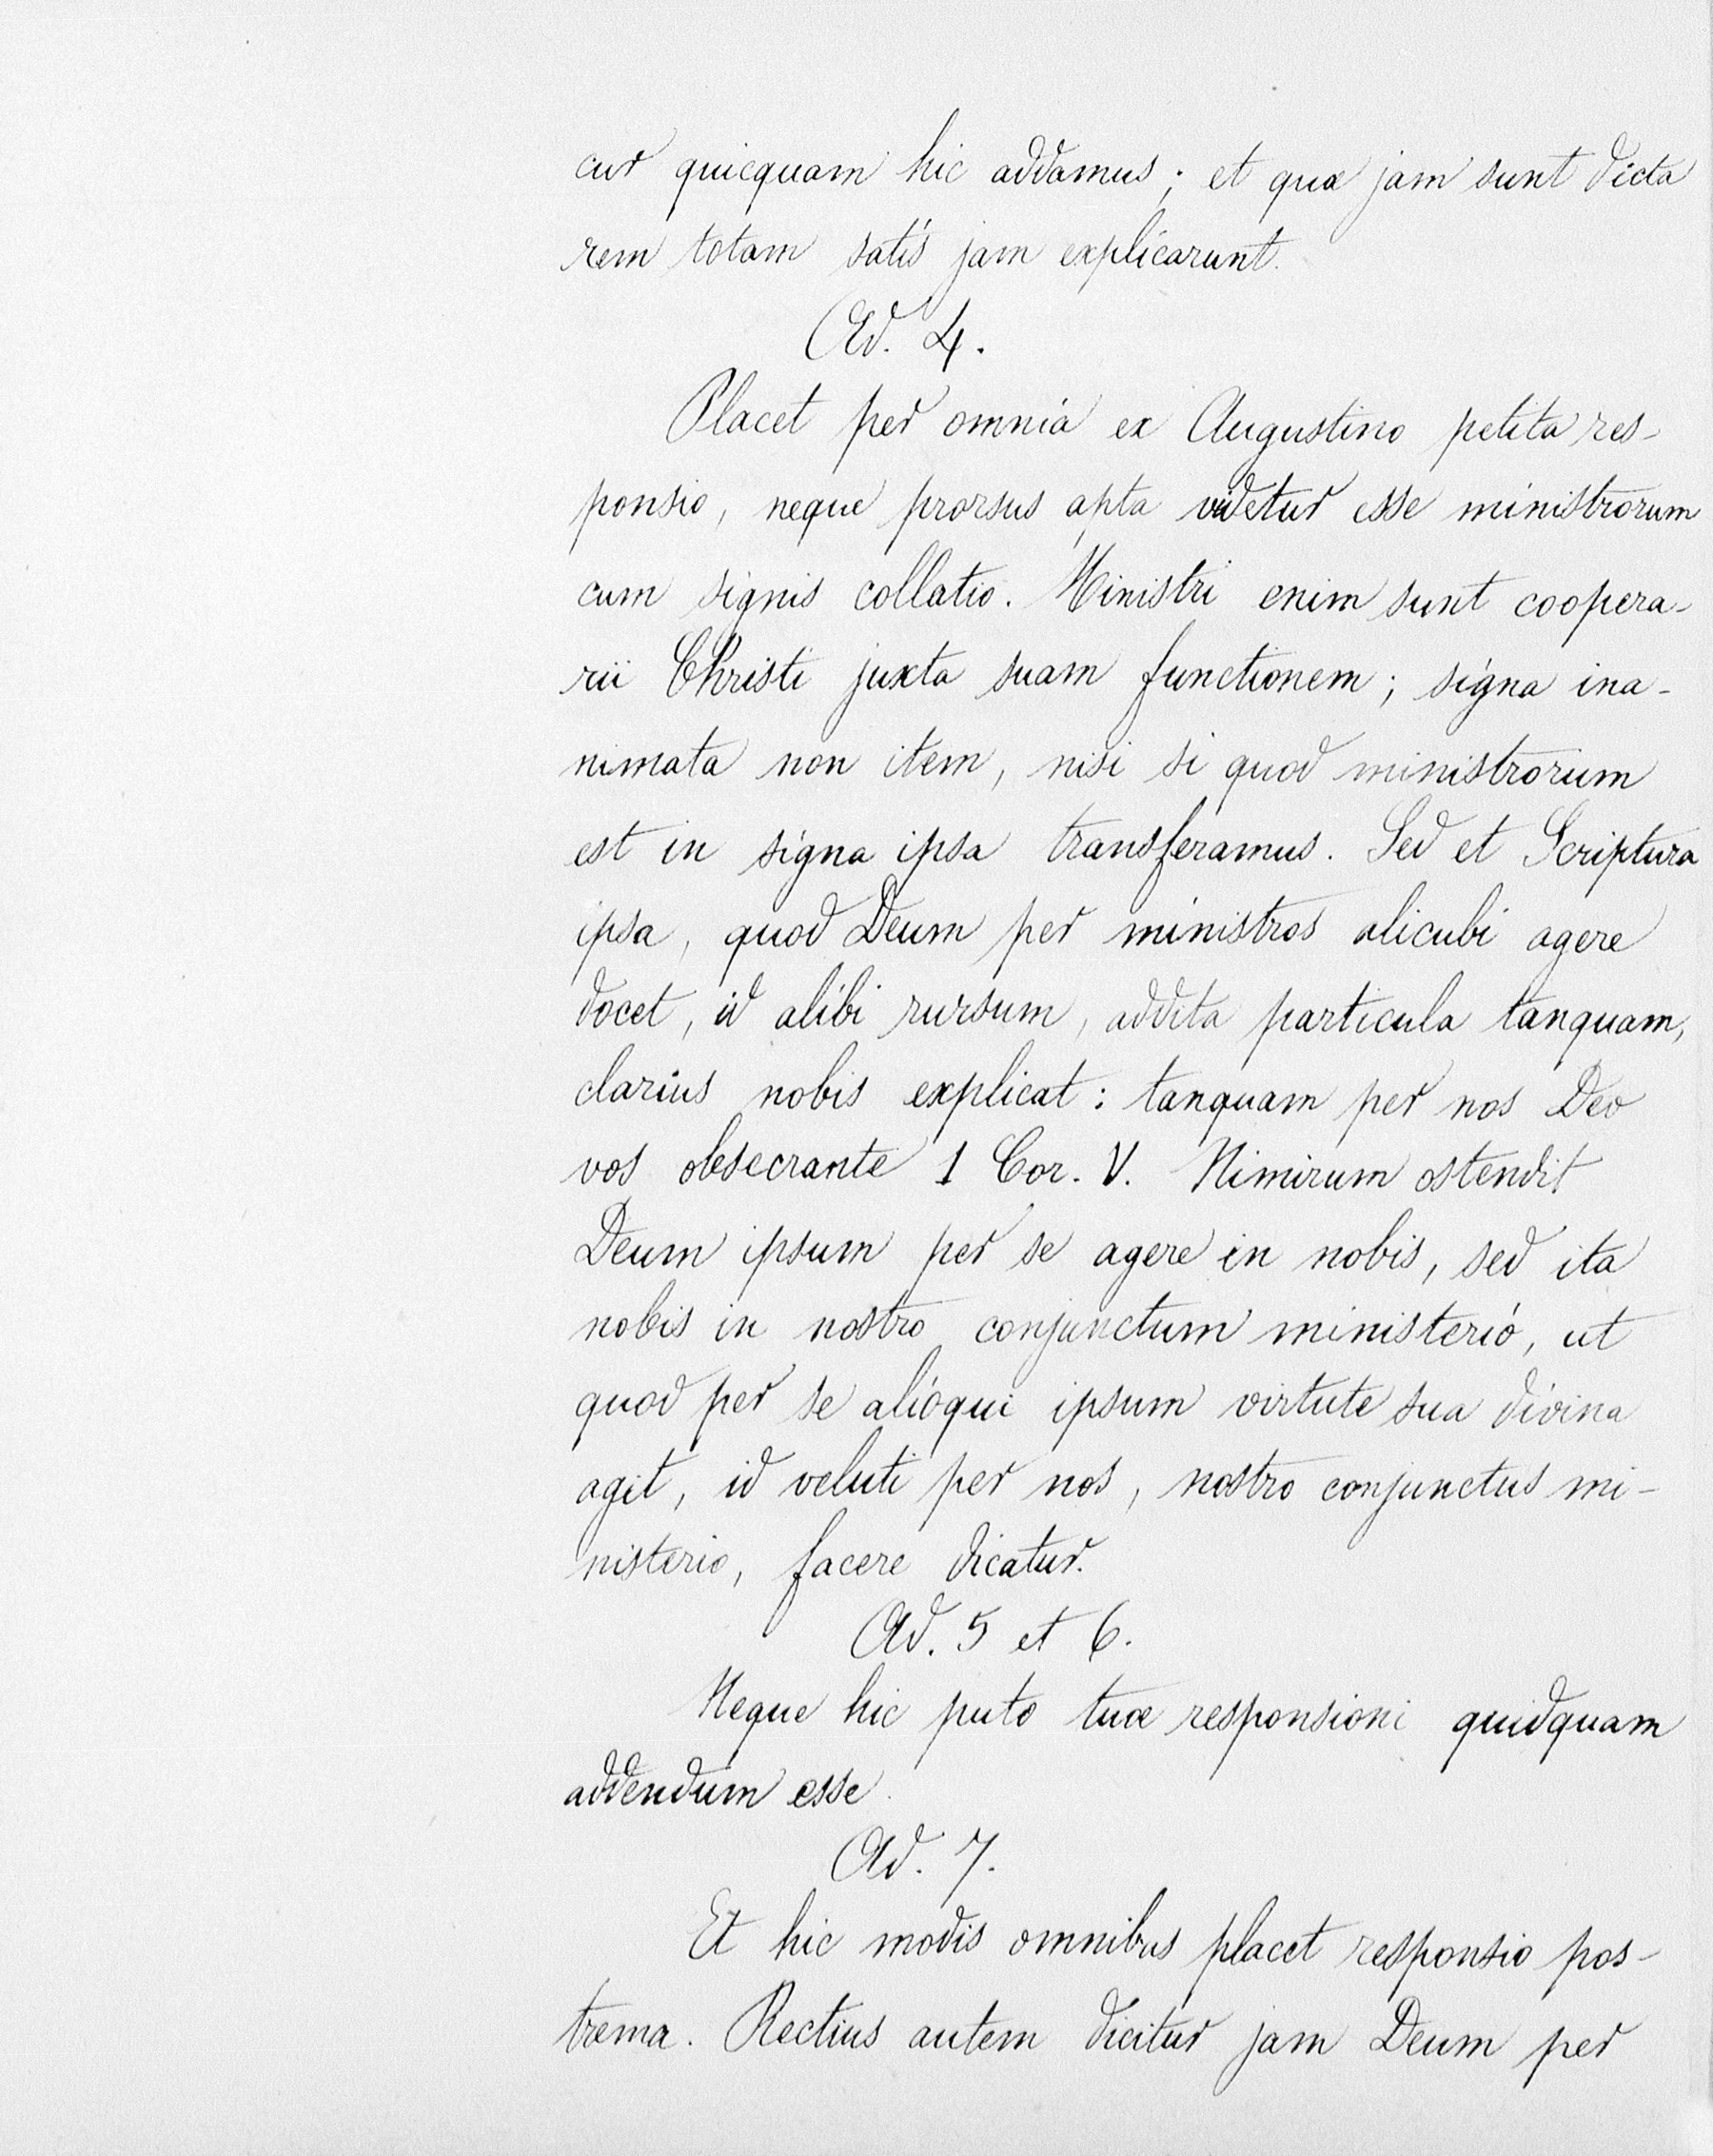 cur quicquam hic addamus; et quæ jam sunt dicta
rem totam satis jam explicarunt.
Ad. 4.
Placet per omnia ex Augustino petita res-
ponsio, neque prorsus apta videtur esse ministrorum
cum signis collatio. Ministri enim sunt coopera-
rii Christi juxta suam functionem; signa ina-
nimata non item, nisi si quod ministrorum
est in signa ipsa transferamus. Sed et Scriptura
ipsa, quod Deum per ministros alicubi agere
docet, id alibi rursum, addita particula tanquam,
clarius nobis explicat: tanquam per nos Deo
vos obsecrante 1 Cor. V. Nimirum ostendit
Deum ipsum per se agere in nobis, sed ita
nobis in nostro conjunctum ministerio, ut
quod per se alioqui ipsum virtute sua divina
agit, id veluti per nos, nostro conjunctus mi-
nisterio, facere dicatur.
Ad. 5 et 6.
Neque hic puto tuæ responsioni quidquam
addendum esse.
Ad. 7.
Et hic modis omnibus placet responsio pos-
trema. Rectius autem dicitur jam Deum per